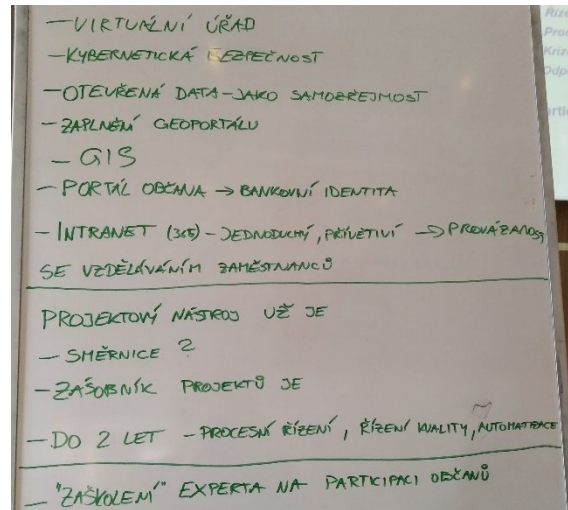 - VIRTUÁLNÍ ÚŘAD
- KYBERNETICKÁ BEZPEČNOST
- OTEVŘENÁ DATA - JAKO SAMOZŘEJMOST
- ZAPLNĚNÍ GEOPORTÁLU
- GIS
- PORTÁL OBČANA → BANKOVNÍ IDENTITA
- INTRANET (365) - JEDNODUCHÝ, PŘÍVĚTIVÍ → PROVÁZANOST
SE VZDĚLÁVÁNÍM ZAMĚSTNANCŮ
PROJEKTOVÝ NÁSTROJ UŽ JE
- SMĚRNICE ?
- ZÁSOBNÍK PROJEKTŮ JE
- DO 2 LET - PROCESNÍ ŘÍZENÍ, ŘÍZENÍ KVALITY, AUTOMATIZACE
- "ZAŠKOLENÍ" EXPERTA NA PARTICIPACI OBČANŮ